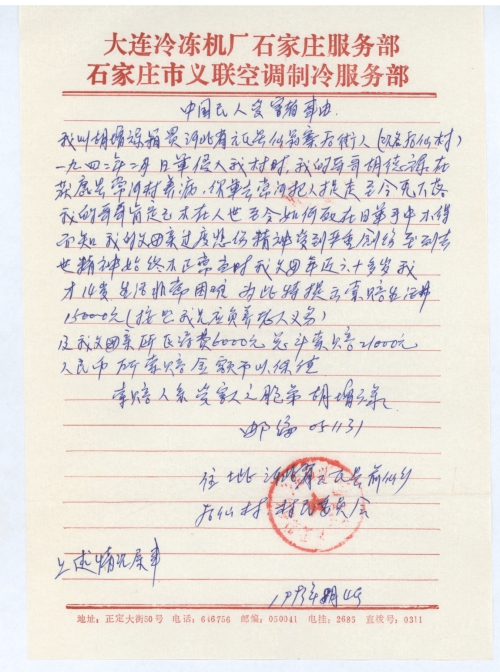 大连冷冻机厂石家庄服务部
石家庄市义联空调制冷服务部
中国民人受害
我叫胡增禄籍贯河北省元氏县仙翁寨后街人(改名后仙村)
一九四二年二月日军侵入我村时,我的哥哥胡德禄在
获鹿县 河村养病,日军去 河把人捉走至今死不
我的哥哥肯定已不在人世至今如何死在日军手中不得
而知 我的父母亲过度悲伤精神受到严重创伤至到去
世精神始终不正常当时我父母年近六十多岁我
才14岁生活非常困难 为此特提出索赔生活费
15000元(按照我兄应负养老人义务)
及我父母亲所医疗费6000元总计索赔21000元
人民币 所索赔金额予以保德
索赔人系受害人之胞弟 胡增禄
邮编 051131
住址 河北省元氏县前仙乡
后仙村 村民委员会
上述情况属
地址:正定大街50号 电话:646756 邮编:050041 电挂:2685 直拨号:0311